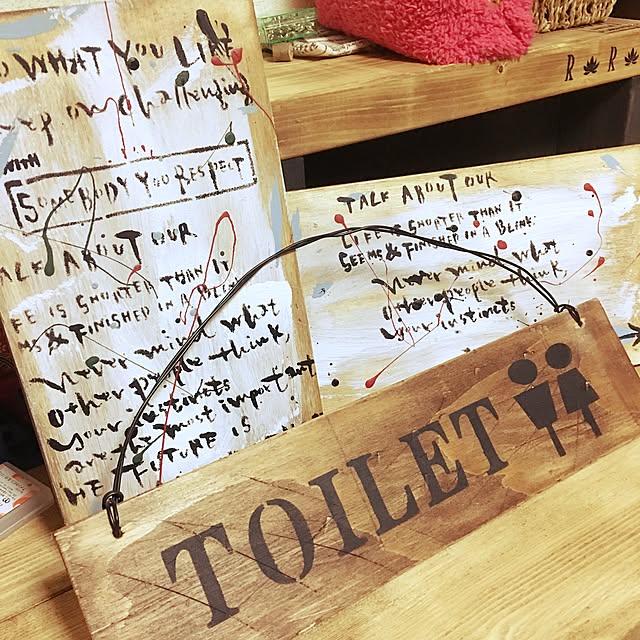 WHAT YOU LIKE
challenging
WITH
SOMEBODY YOU RESPECT
TALK ABOUT OUR
FE IS SHORTER THAN IT
MS & FINISHED IN A BLINK
Never mind what
other people think,
your instincts
are most important
HE FUTURE IS
TALK ABOUT OUR
LIFE IS SHORTER THAN IT
SEEMS & FINISHED IN A BLINK.
Never mind what
other people think,
your instincts
R R
TOILET